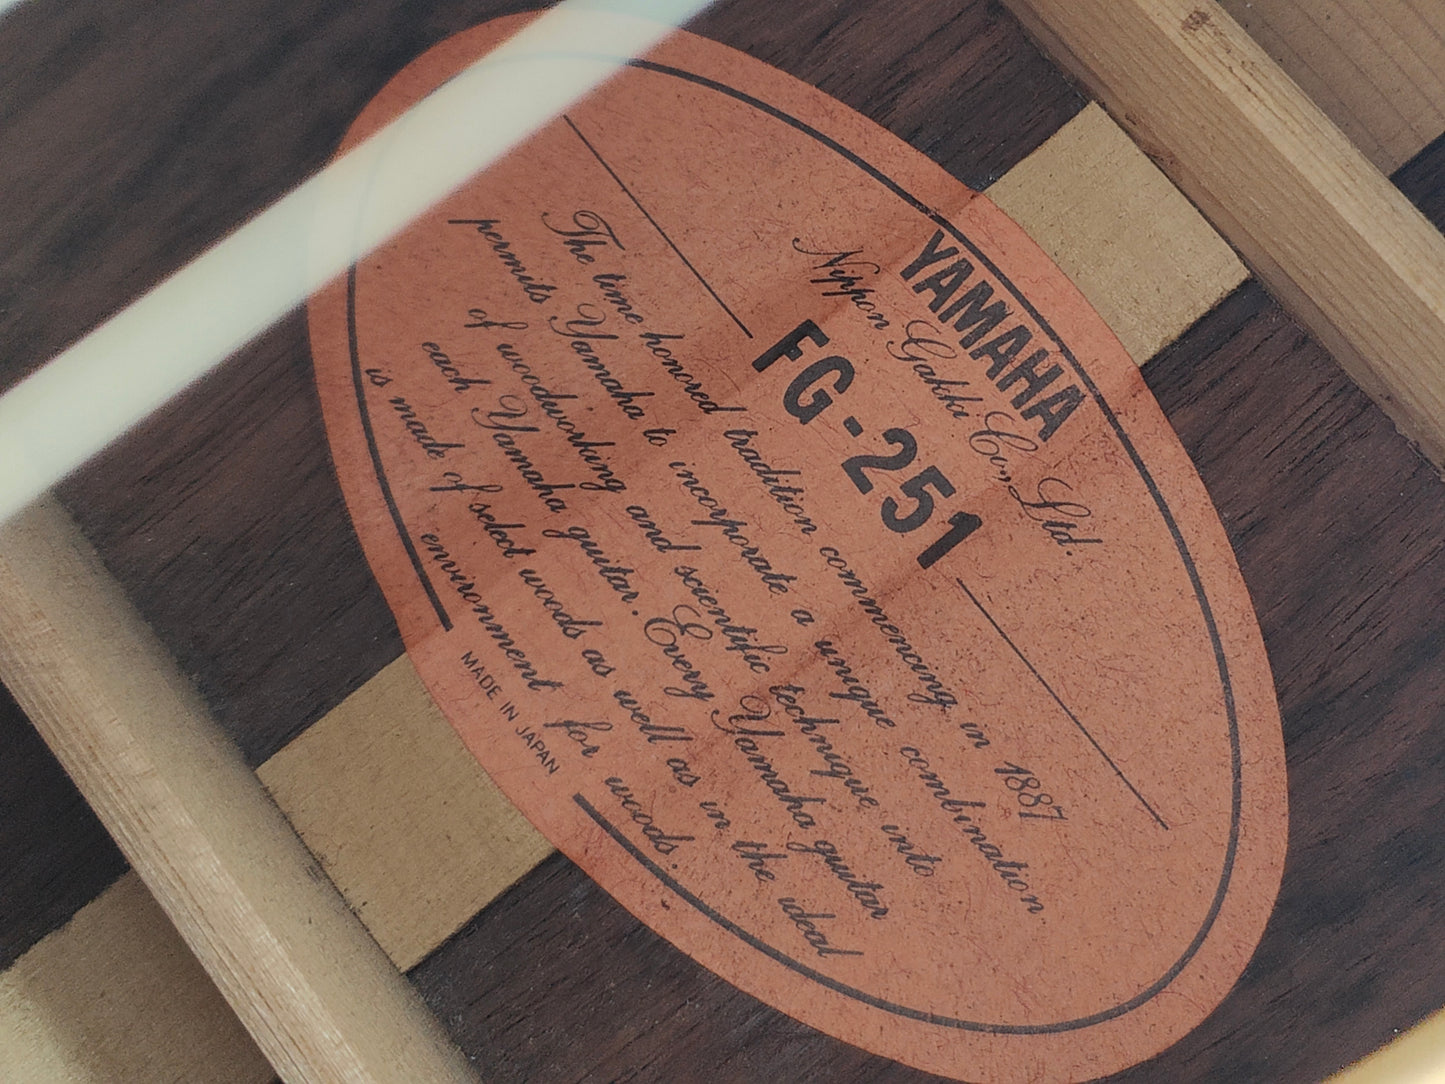 YAMAHA
Nippon Gakki Co., Ltd.
FG-251
The time honored tradition commencing in 1887
permits Yamaha to incorporate a unique combination
of woodworking and scientific technique into
each Yamaha guitar. Every Yamaha guitar
is made of select woods as well as in the ideal
environment for woods.
MADE IN JAPAN